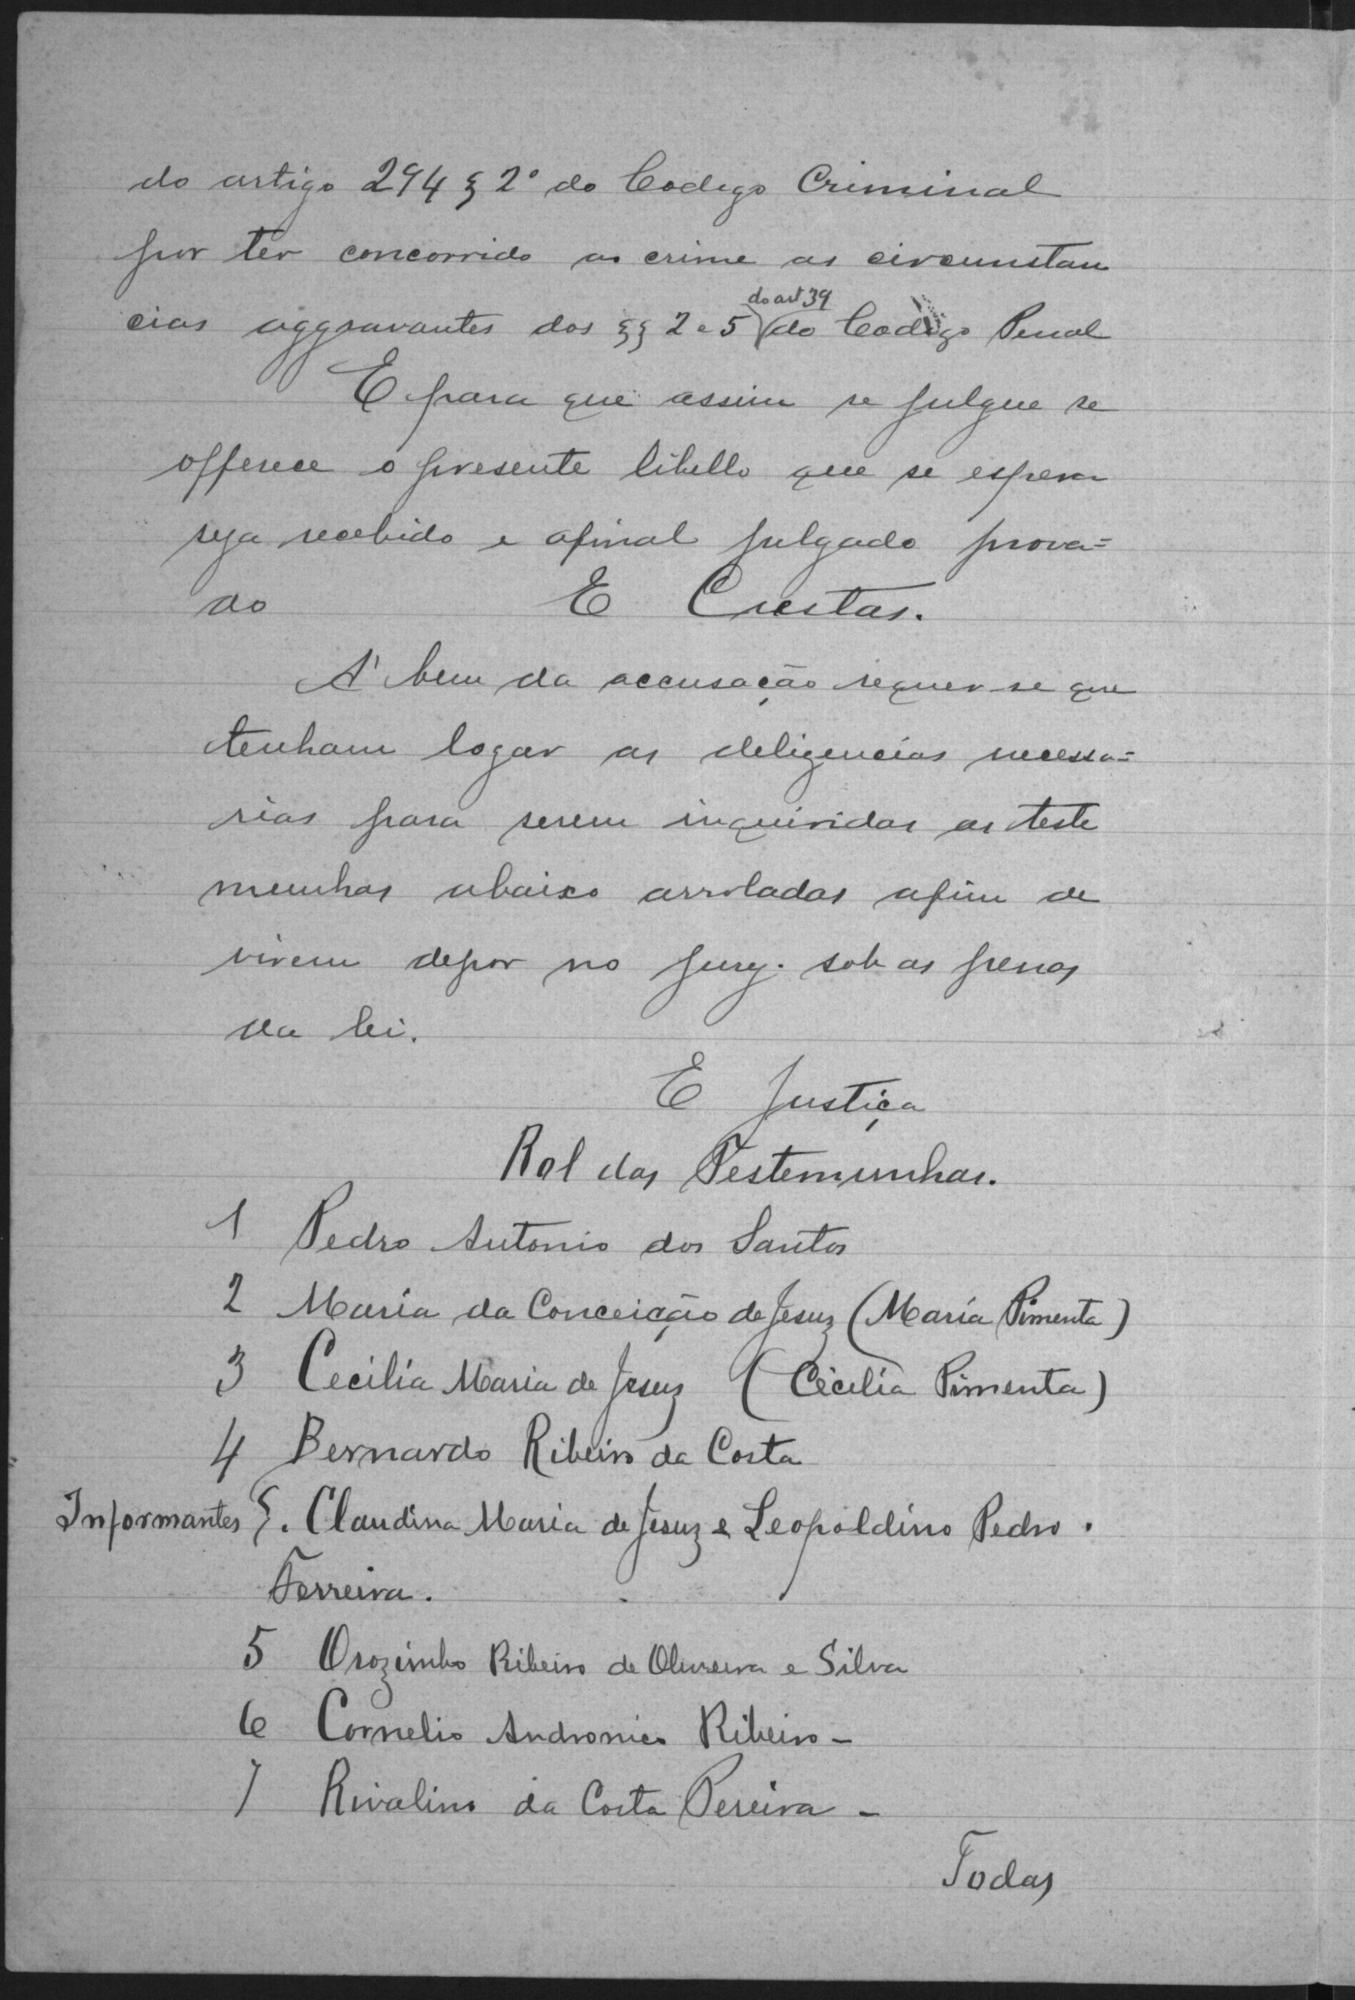 do artigo 294 § 2º do Codigo Criminal
por ter concorrido ao crime as circumstan
do art 39
cias aggravantes dos §§ 2 e 5 do Codigo Penal
E para que assim se julgue se
offerece o presente libello que se espera
seja recebido e afinal julgado prova=
do E Custas.
A' bem da accusação requer-se que
tenham logar as deligencias necessa=
rias para serem inquiridas as teste
munhas abaixo arroladas afim de
virem depor no jury. sob as penas
da lei.
E Justiça
Rol das Testemunhas.
1 Pedro Antonio dos Santos
2 Maria da Conceição de Jesuz (Maria Pimenta)
3 Cecilia Maria de Jesuz (Cecilia Pimenta)
4 Bernardo Ribeiro da Costa
Informantes §. Claudina Maria de Jesuz e Leopoldino Pedro.
Ferreira.
5 Orozimbo Ribeiro de Oliveira e Silva
6 Cornelio Andronico Ribeiro-
7 Rivalino da Costa Pereira-
Todas